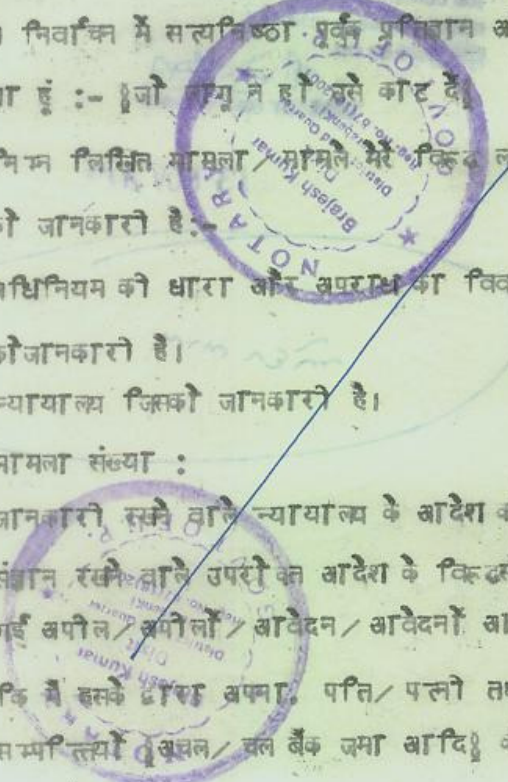 निर्वाचन में सत्यनिष्ठा पूर्वक प्रतिज्ञान अ
ा हूं :- (जो लागू न हो उसे काट दें)
निम्न लिखित मामला/मामले मेरे विरूद्ध ल
की जानकारी है:-
अधिनियम की धारा और अपराध का विव
की जानकारी है।
न्यायालय जिसको जानकारी है।
मामला संख्या :
जानकारी रखने वाले न्यायालय के आदेश क
संज्ञान रखने वाले उपरोक्त आदेश के विरूद्ध
गई अपील/अपीलों/आवेदन/आवेदनों आ
कि मैं इसके द्वारा अपना, पति/पत्नी तथ
सम्पत्तियों (अचल/चल बैंक जमा आदि) क
NOTARY
GOVT. OF
Brajesh Kumar
Dixit
District Head Quarter
Barabanki